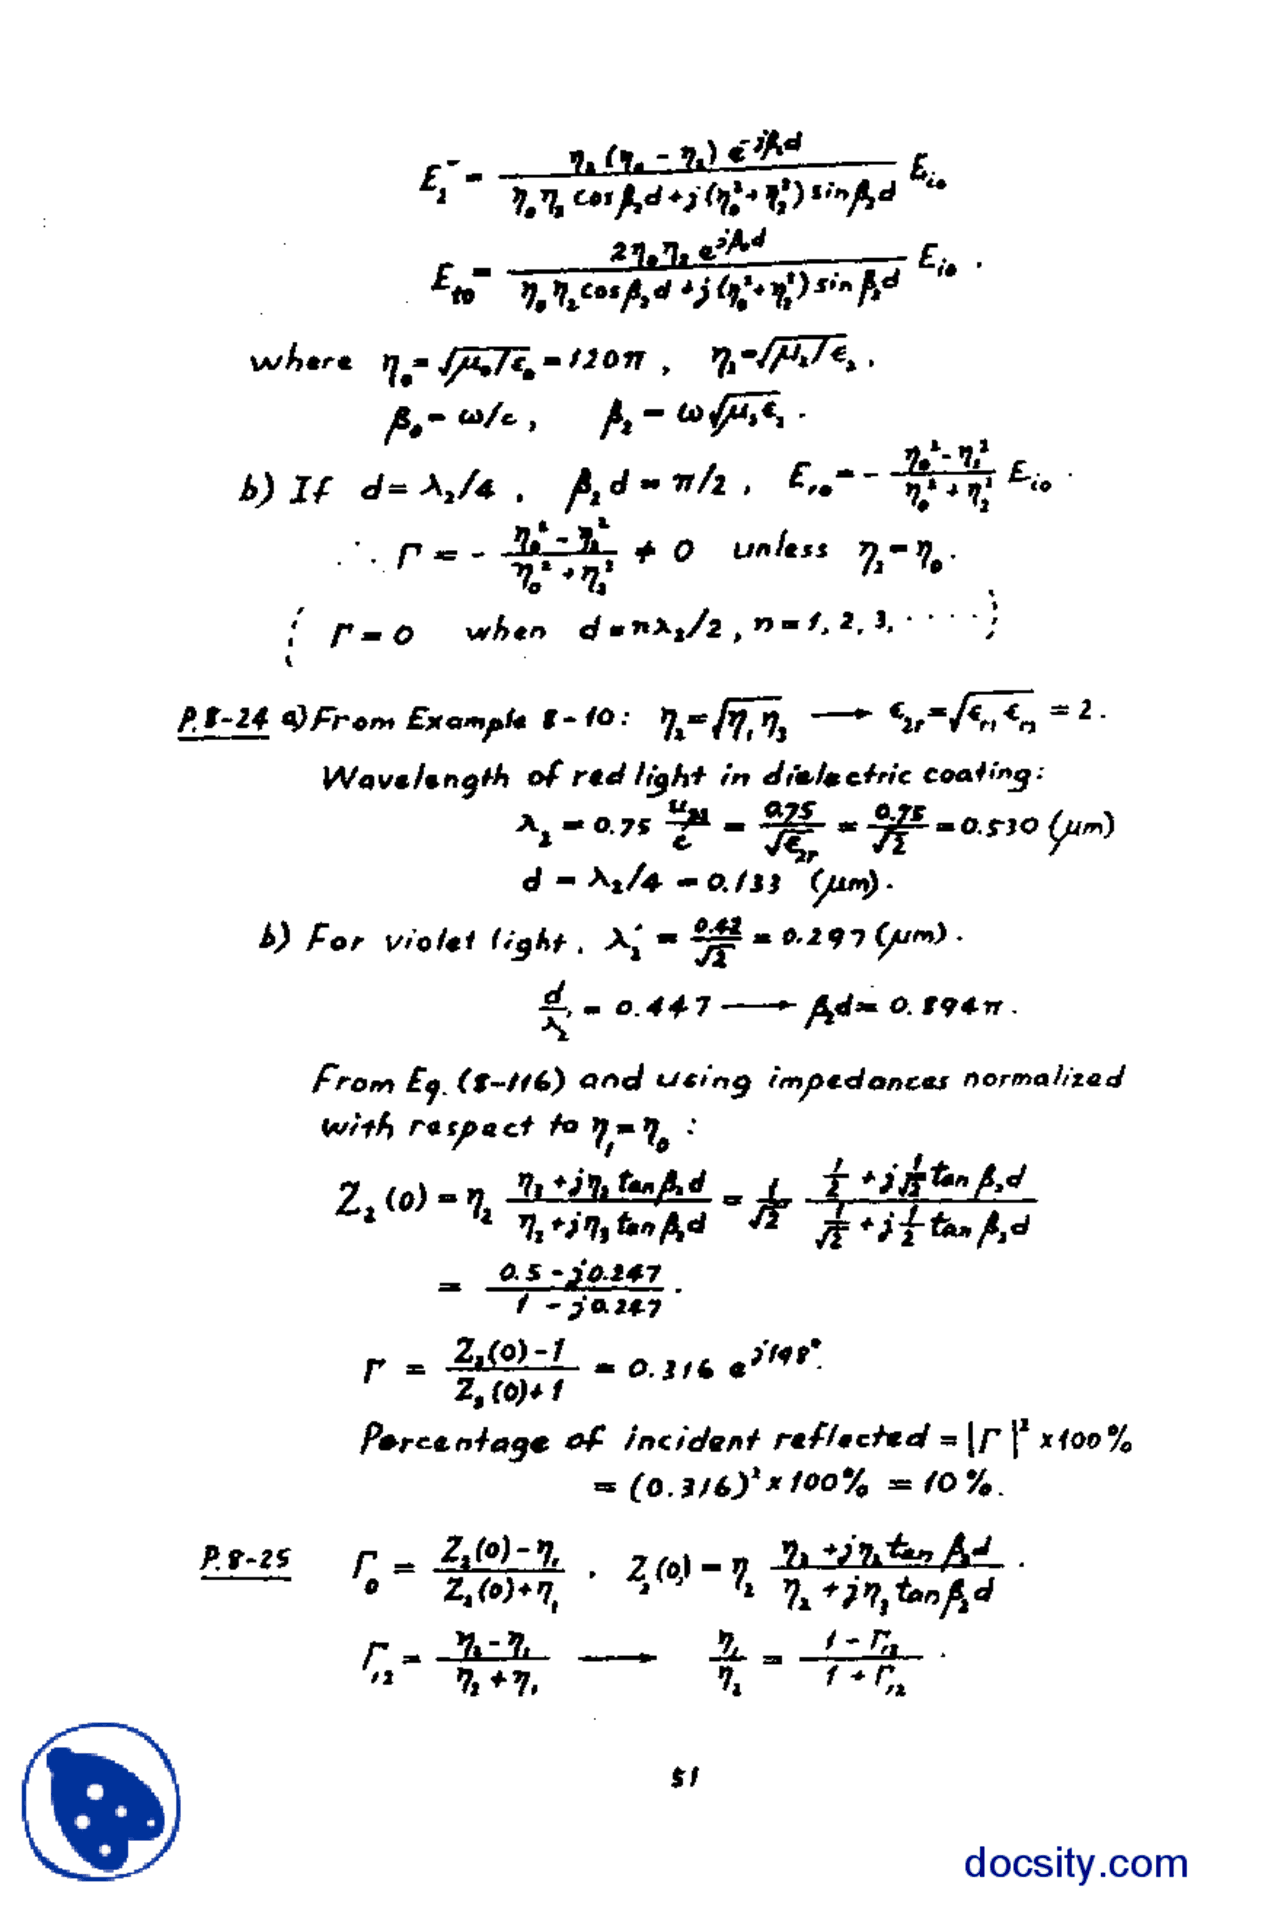 E₂⁻ = η₂(η₀ - η₂) e^(-jβ₂d) / (η₀η₂ cos β₂d + j(η₀² + η₂²) sin β₂d) E_i0
E_t0 = 2η₀η₂ e^(jβ₀d) / (η₀η₂ cos β₂d + j(η₀² + η₂²) sin β₂d) E_i0 .
where η₀ = √(μ₀/ε₀) = 120π , η₂ = √(μ₂/ε₂) ,
β₀ = ω/c , β₂ = ω√(μ₂ε₂) .
b) If d = λ₂/4 , β₂d = π/2 , E_r0 = - (η₀² - η₂²)/(η₀² + η₂²) E_i0 .
∴ Γ = - (η₀² - η₂²)/(η₀² + η₂²) ≠ 0 unless η₂ = η₀ .
( Γ = 0 when d = nλ₂/2 , n = 1, 2, 3, ···· )
P.8-24 a) From Example 8-10: η₂ = √(η₁η₃) ⟶ ε₂r = √(ε_r1 ε_r3) = 2 .
Wavelength of red light in dielectric coating:
λ₂ = 0.75 u_p2/c = 0.75/√ε₂r = 0.75/√2 = 0.530 (μm)
d = λ₂/4 = 0.133 (μm) .
b) For violet light , λ₂′ = 0.42/√2 = 0.297 (μm) .
d/λ₂′ = 0.447 ⟶ β₂d = 0.894π .
From Eq. (8-116) and using impedances normalized
with respect to η₁ = η₀ :
Z₂(0) = η₂ (η₃ + jη₂ tan β₂d)/(η₂ + jη₃ tan β₂d) = 1/√2 (1/2 + j 1/√2 tan β₂d)/(1/√2 + j 1/2 tan β₂d)
= (0.5 - j0.247)/(1 - j0.247) .
Γ = (Z₂(0) - 1)/(Z₂(0) + 1) = 0.316 e^(j198°) .
Percentage of incident reflected = |Γ|² × 100%
= (0.316)² × 100% = 10% .
P.8-25 Γ₀ = (Z₂(0) - η₁)/(Z₂(0) + η₁) , Z₂(0) = η₂ (η₃ + jη₂ tan β₂d)/(η₂ + jη₃ tan β₂d) .
Γ₁₂ = (η₂ - η₁)/(η₂ + η₁) ⟶ η₁/η₂ = (1 - Γ₁₂)/(1 + Γ₁₂) .
51
docsity.com